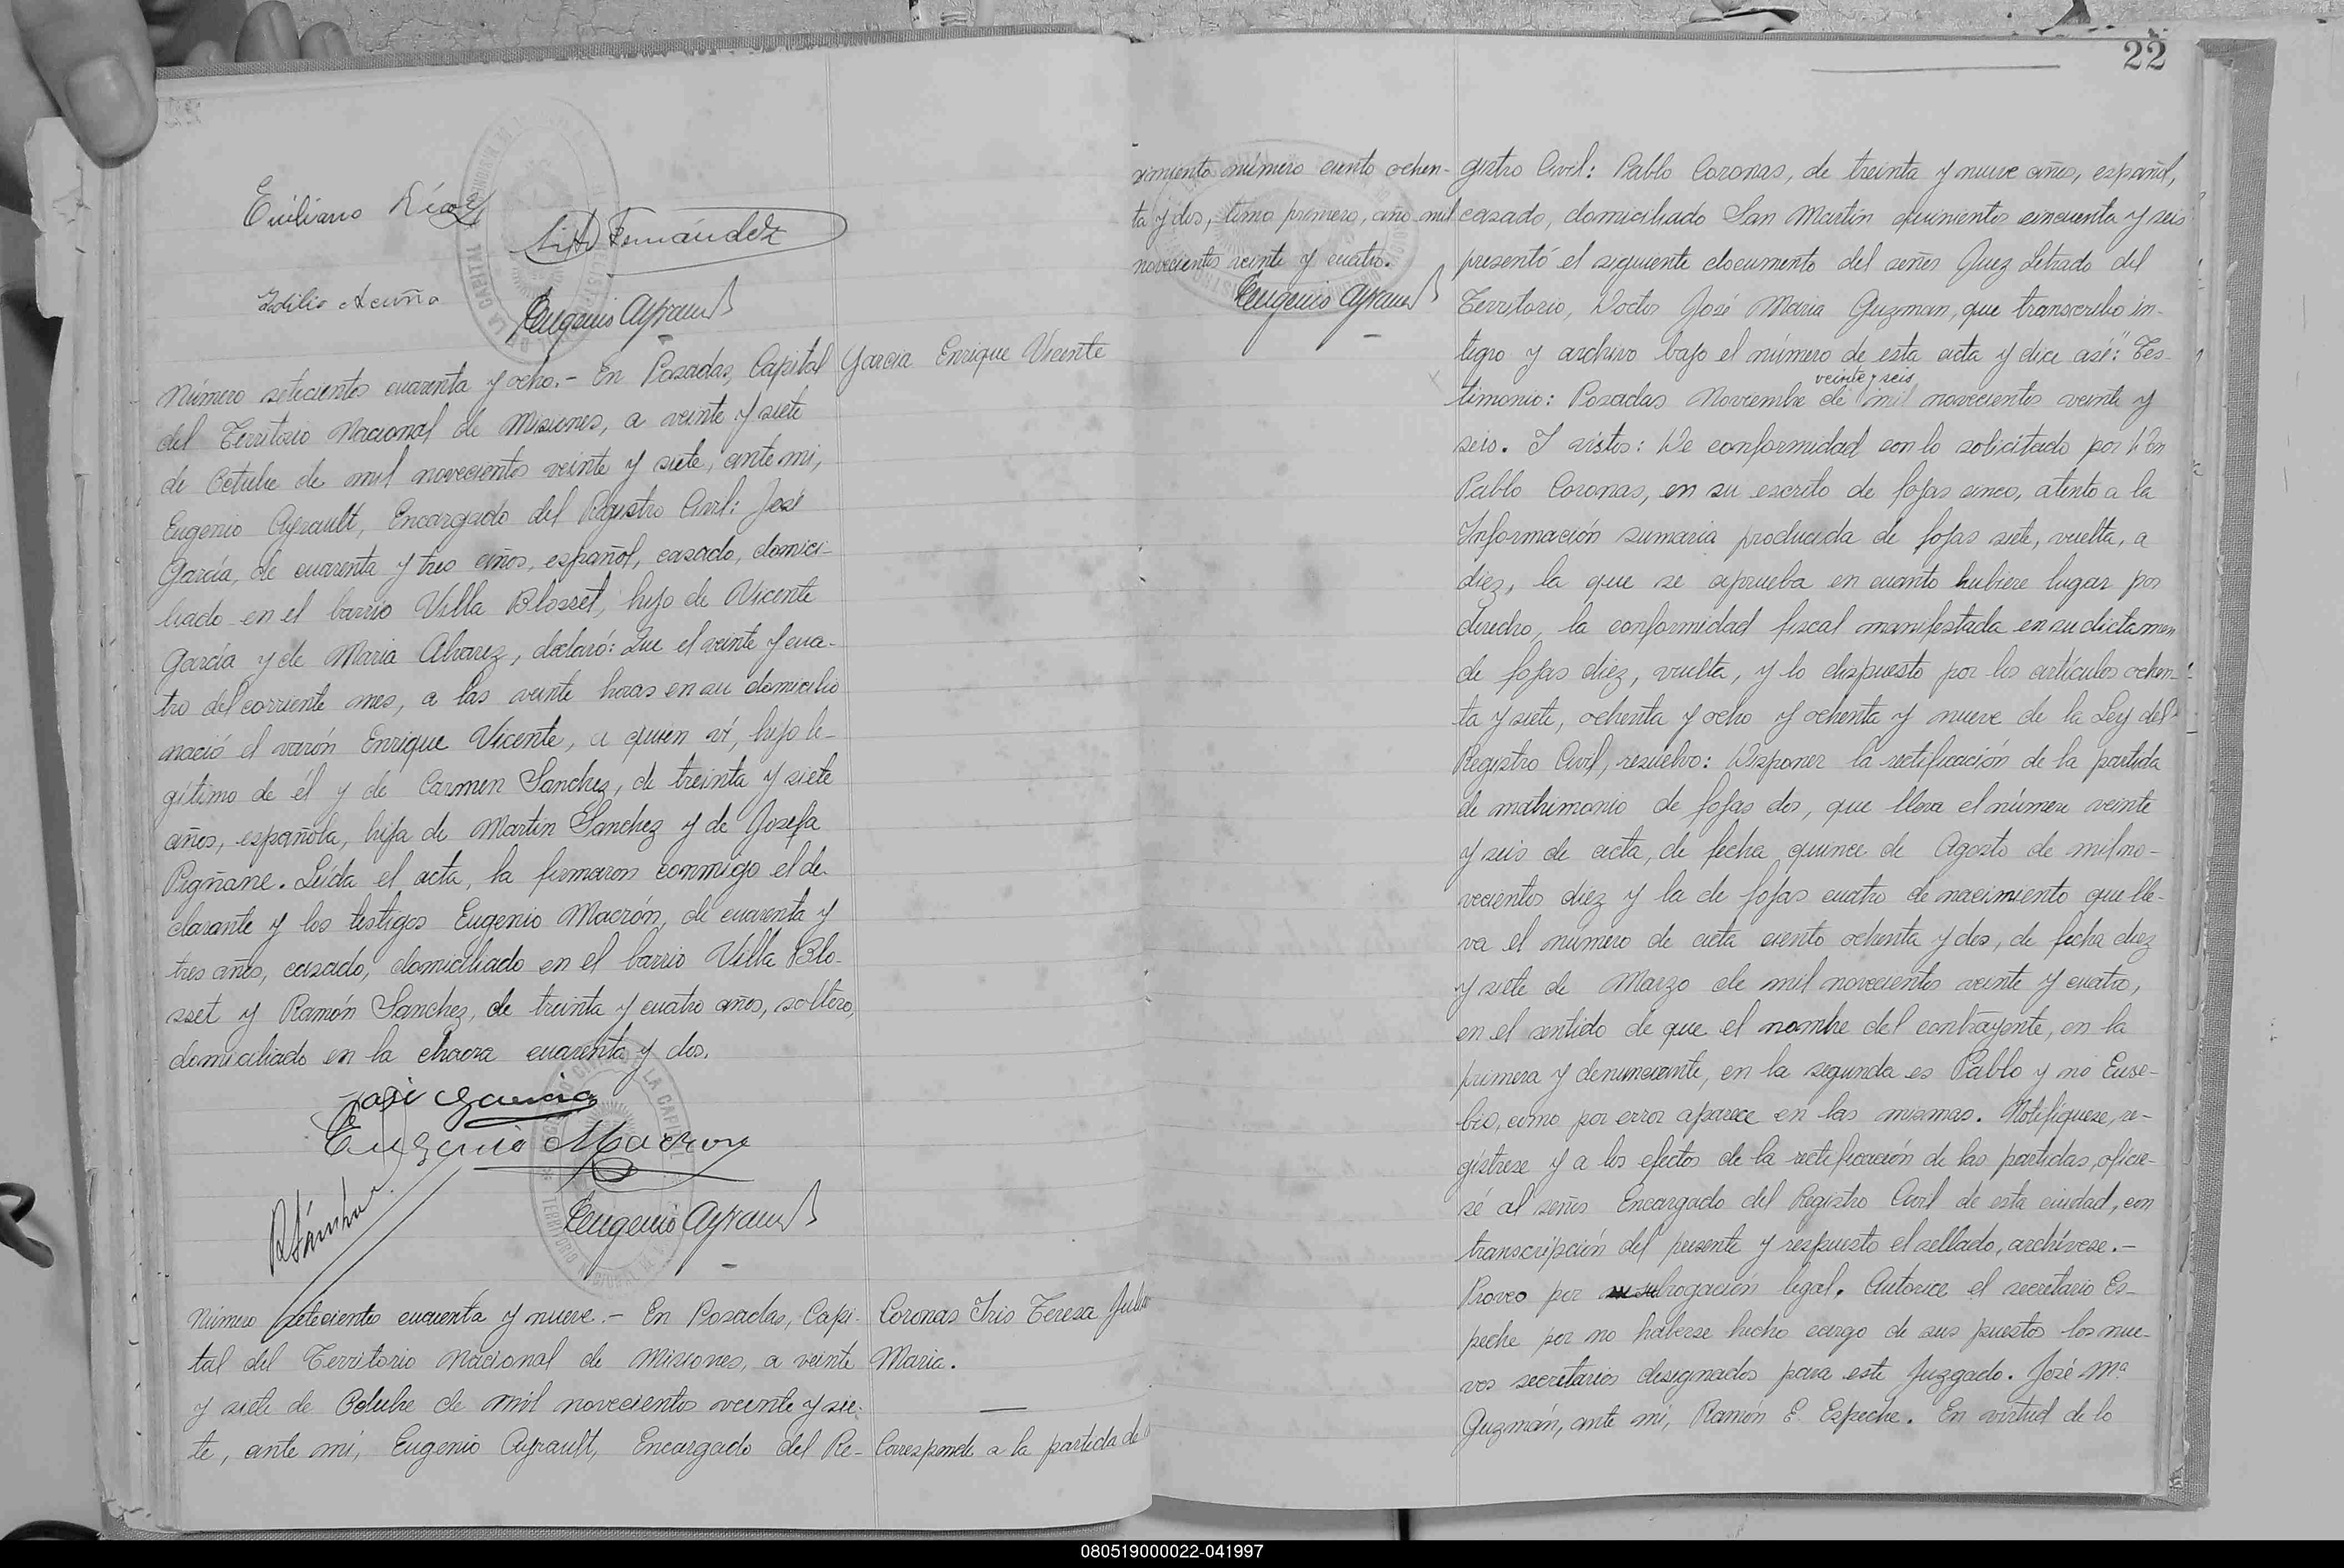 Emiliano Díaz
Fernández
Idilio Acuña
Eugenio Ayrault
Número setecientos cuarenta y ocho.- En Posadas, Capital
del Territorio Nacional de Misiones, a veinte y siete
de Octubre de mil novecientos veinte y siete, ante mi,
Eugenio Ayrault, Encargado del Registro Civil: José
García, de cuarenta y tres años, español, casado, domici-
liado en el barrio Villa Blosset, hijo de Vicente
García y de Maria Alvarez, declaró: Que el veinte y cua-
tro del corriente mes, a las veinte horas en su domicilio
nació el varón Enrique Vicente, a quien ví, hijo le-
gítimo de él y de Carmen Sanchez, de treinta y siete
años, española, hija de Martin Sanchez y de Josefa
Pigñane. Leída el acta, la firmaron conmigo el de-
clarante y los testigos Eugenio Macrón, de cuarenta y
tres años, casado, domiciliado en el barrio Villa Blo-
sset y Ramón Sanchez, de treinta y cuatro años, soltero,
domiciliado en la chacra cuarenta y dos.
Garcia Enrique Vicente
José Garcia
Eugenio Macron
RSánchez
Eugenio Ayrault
Número setecientos cuarenta y nueve.- En Posadas, Capi-
tal del Territorio Nacional de Misiones, a veinte
y siete de Octubre de mil novecientos veinte y sie-
te, ante mí, Eugenio Ayrault, Encargado del Re-
Coronas Iris Teresa Julia
Maria.
Corresponde a la partida de
22
cimiento número ciento ochen-
ta y dos, tomo primero, año mil
novecientos veinte y cuatro.
Eugenio Ayrault
gistro Civil: Pablo Coronas, de treinta y nueve años, español,
casado, domiciliado San Martín quinientos cincuenta y seis
presentó el siguiente documento del señor Juez Letrado del
Territorio, Doctor José Maria Guzman, que transcribo in-
tegro y archivo bajo el número de esta acta y dice asé: "Tes-
veinte y seis
timonio: Posadas Noviembre de mil novecientos veinte y
seis. Y vistos: De conformidad con lo solicitado por Don
Pablo Coronas, en su escrito de fojas cinco, atento a la
Información sumaria producida de fojas siete, vuelta, a
diez, la que se aprueba en cuanto hubiere lugar por
derecho, la conformidad fiscal manifestada en su dictamen
de fojas diez, vuelta, y lo dispuesto por los artículos ochen-
ta y siete, ochenta y ocho y ochenta y nueve de la Ley del
Registro Civil, resuelvo: Disponer la rectificación de la partida
de matrimonio de fojas dos, que lleva el número veinte
y seis de acta, de fecha quince de Agosto de mil no-
vecientos diez y la de fojas cuatro de nacimiento que lle-
va el número de acta ciento ochenta y dos, de fecha diez
y siete de Marzo de mil novecientos veinte y cuatro,
en el sentido de que el nombre del contrayente, en la
primera y denunciante, en la segunda es Pablo y no Euse-
bio, como por error aparece en las mismas. Notifíquese, re-
gístrese y a los efectos de la rectificación de las partidas, oficie-
sé al señor Encargado del Registro Civil de esta ciudad, con
transcripción del presente y respuesto el sellado, archívese.-
Proveo por subrogación legal. Autorice el secretario Es-
peche por no haberse hecho cargo de sus puestos los nue-
vos secretarios designados para este Juzgado. José Mª
Guzmán, ante mi, Ramón E. Espeche. En virtud de lo
080519000022-041997